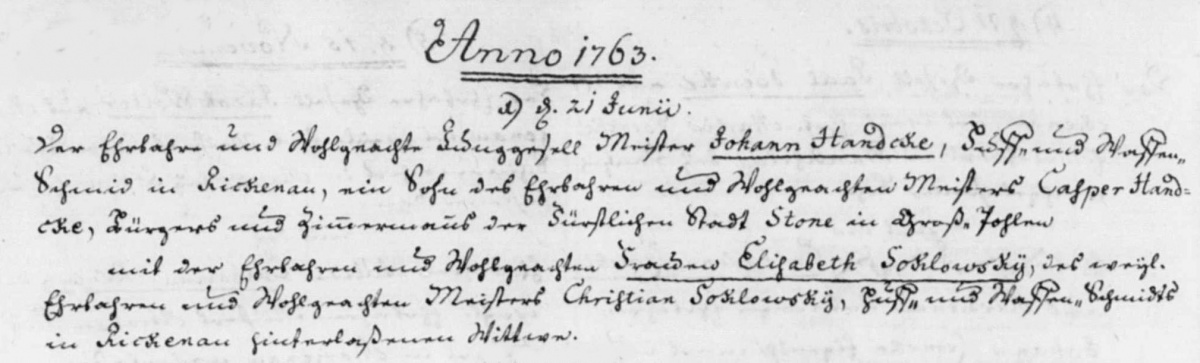 Anno 1763.
1) d. 21 Junii.
Der Ehrbahre und Wohlgeachte Junggesell Meister Johann Handcke, Huff- und Waffen-
Schmid in Rickenau, ein Sohn des Ehrbahren und Wohlgeachten Meisters Casper Hand-
cke, Bürgers und Zimmermañs der Fürstlichen Stadt Stone in Groß-Pohlen
mit der Ehrbahren und Wohlgeachten Frauen Elisabeth Sokilowskÿ, des weyl.
Ehrbahren und Wohlgeachten Meisters Christian Sokilowskÿ, Huff- und Waffen-Schmidts
in Rickenau hinterlaßenen Wittwe.